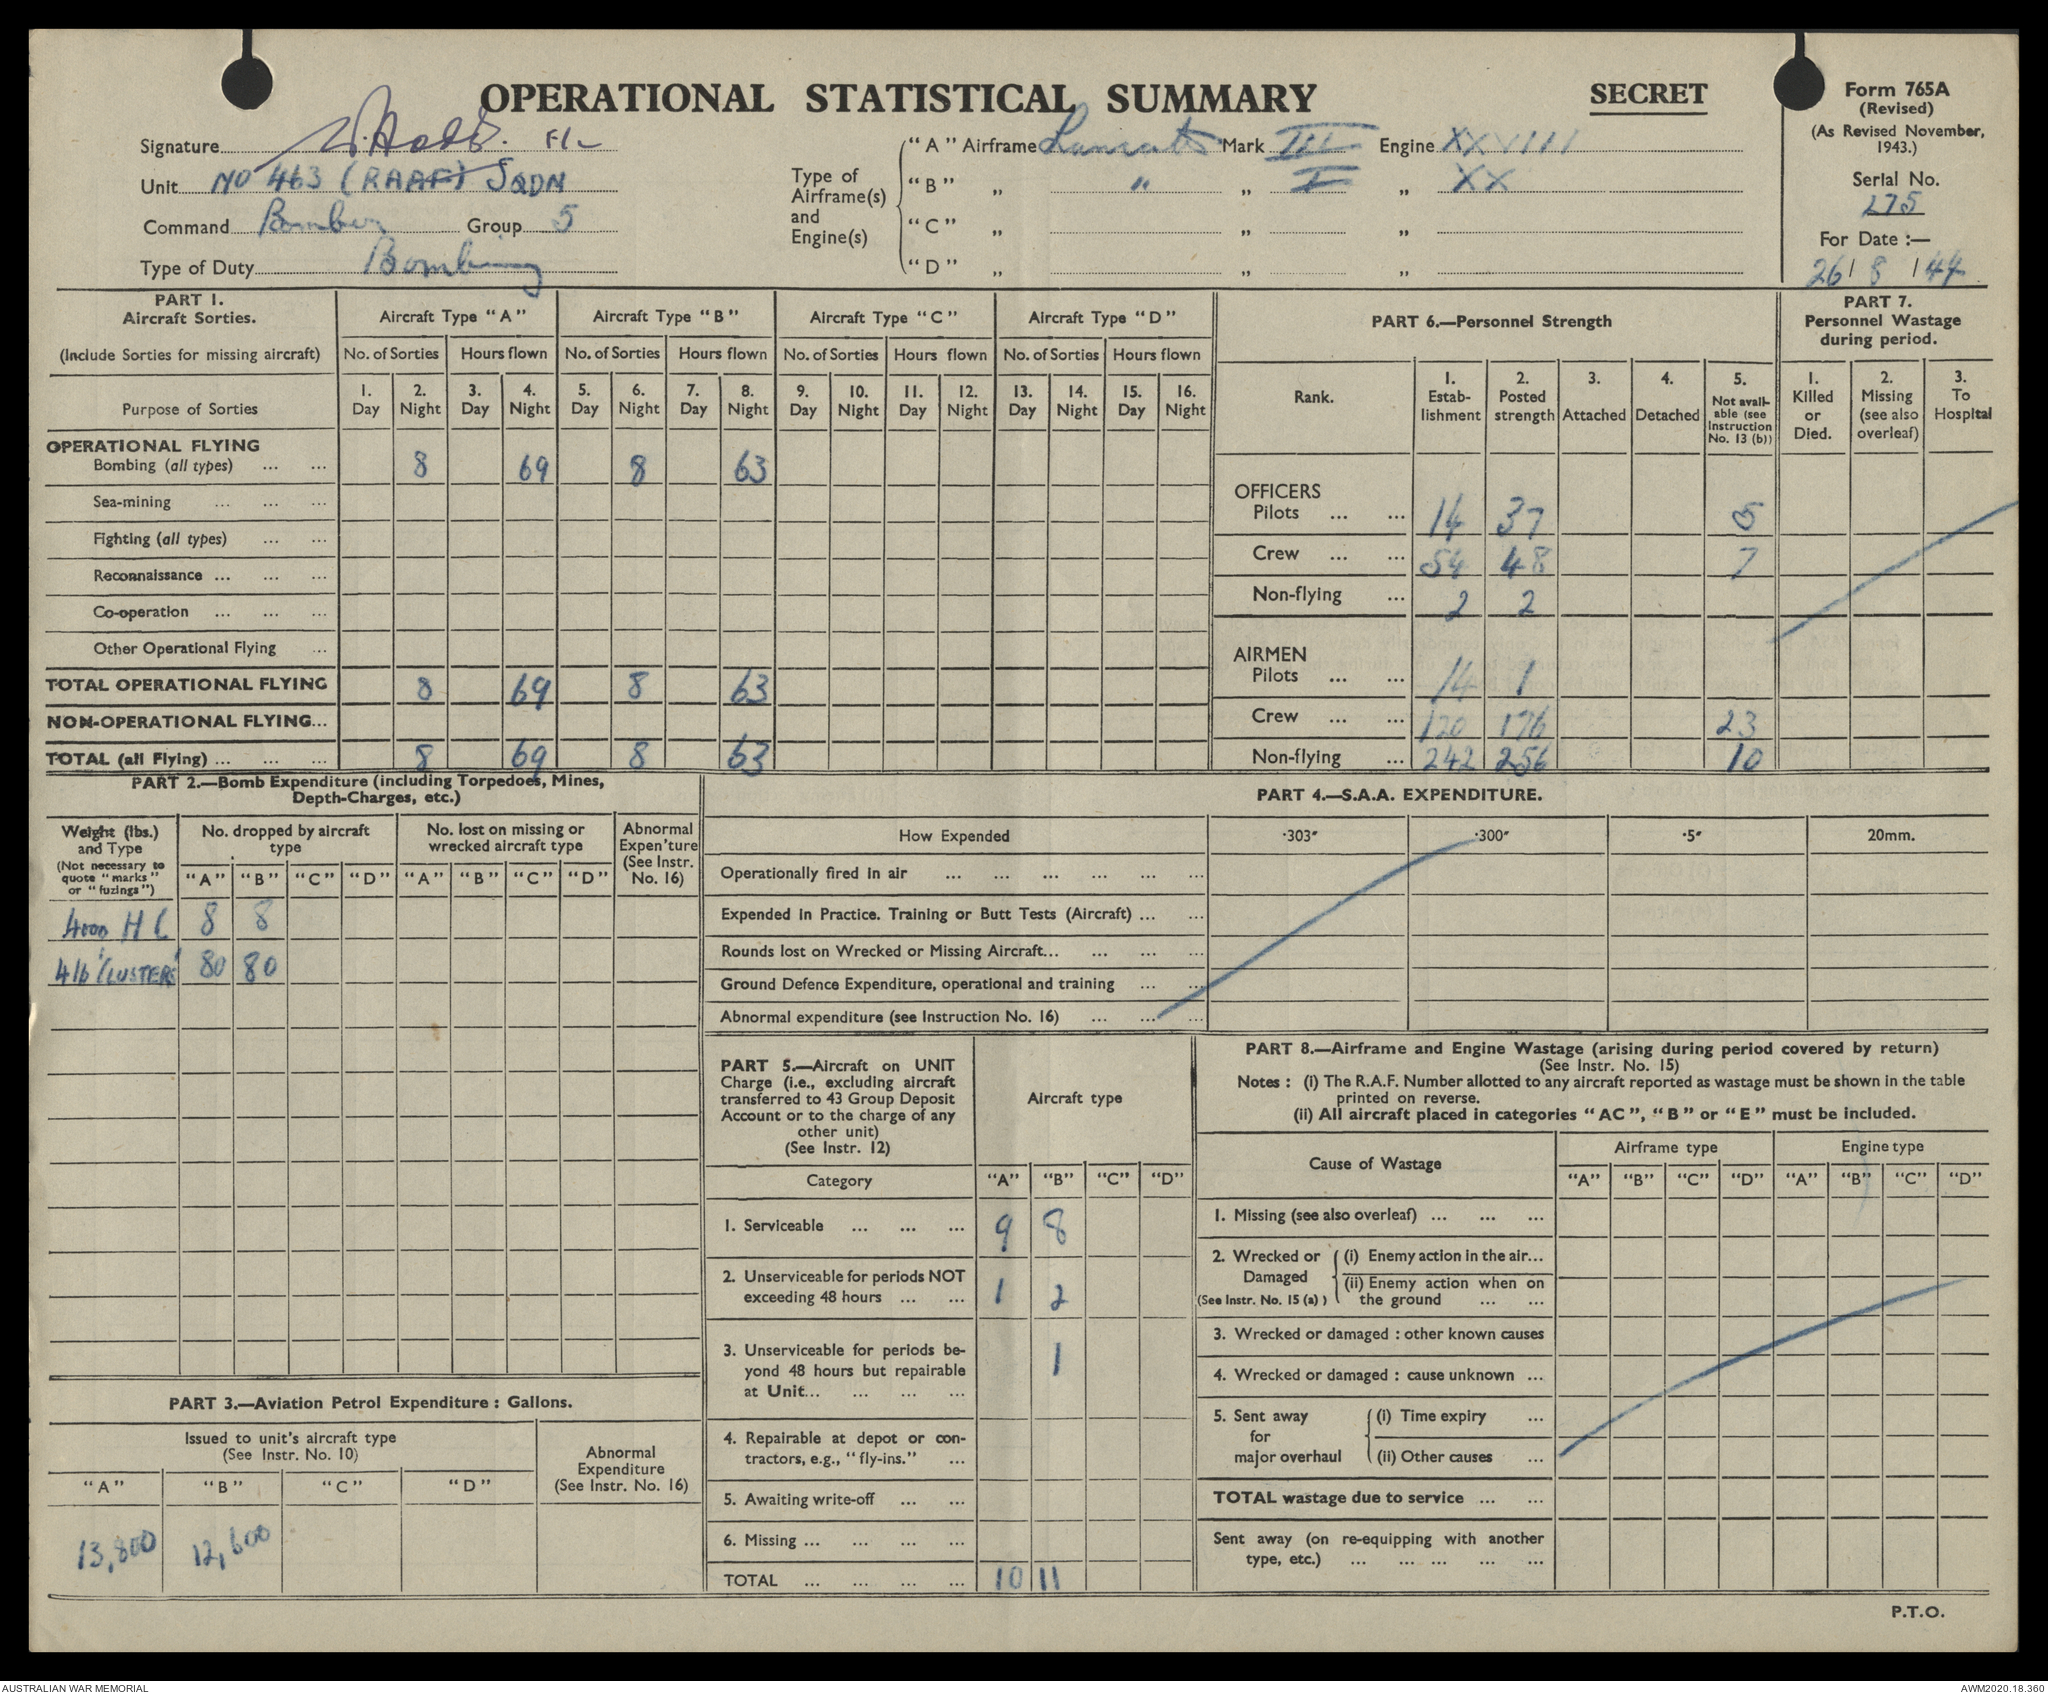 OPERATIONAL STATISTICAL SUMMARY
SECRET
Form 765A
(Revised)
(As Revised November, 1943.)
Serial No.
275
For Date :—
26 / 8 / 44
Signature F/L
Unit NO 463 (RAAF) SQDN
Command Bomber Group 5
Type of Duty Bombing
Type of Airframe(s) and Engine(s)
"A" Airframe Lancaster Mark III Engine XXVIII
"B" „ " „ I „ XX
"C" „ „ „
"D" „ „ „
PART 1.
Aircraft Sorties.
(Include Sorties for missing aircraft)
Aircraft Type "A" Aircraft Type "B" Aircraft Type "C" Aircraft Type "D"
No. of Sorties Hours flown No. of Sorties Hours flown No. of Sorties Hours flown No. of Sorties Hours flown
Purpose of Sorties
1. Day 2. Night 3. Day 4. Night 5. Day 6. Night 7. Day 8. Night 9. Day 10. Night 11. Day 12. Night 13. Day 14. Night 15. Day 16. Night
OPERATIONAL FLYING
Bombing (all types) ... ... 8 69 8 63
Sea-mining ... ... ...
Fighting (all types) ... ...
Reconnaissance ... ... ...
Co-operation ... ... ...
Other Operational Flying ...
TOTAL OPERATIONAL FLYING 8 69 8 63
NON-OPERATIONAL FLYING...
TOTAL (all Flying) ... ... ... 8 69 8 63
PART 6.—Personnel Strength
Rank.
1. Establishment
2. Posted strength
3. Attached
4. Detached
5. Not available (see Instruction No. 13 (b))
OFFICERS
Pilots ... ... 14 37 5
Crew ... ... 54 48 7
Non-flying ... 2 2
AIRMEN
Pilots ... ... 14 1
Crew ... ... 120 176 23
Non-flying ... 242 256 10
PART 7.
Personnel Wastage
during period.
1. Killed or Died.
2. Missing (see also overleaf)
3. To Hospital
PART 2.—Bomb Expenditure (including Torpedoes, Mines,
Depth-Charges, etc.)
Weight (lbs.) and Type
(Not necessary to quote "marks" or "fuzings")
No. dropped by aircraft type
No. lost on missing or wrecked aircraft type
Abnormal Expen'ture (See Instr. No. 16)
"A" "B" "C" "D" "A" "B" "C" "D"
4000 HC 8 8
4lb 'CLUSTERS' 80 80
PART 4.—S.A.A. EXPENDITURE.
How Expended ·303" ·300" ·5" 20mm.
Operationally fired in air ... ... ... ... ... ...
Expended in Practice. Training or Butt Tests (Aircraft) ... ...
Rounds lost on Wrecked or Missing Aircraft... ... ... ...
Ground Defence Expenditure, operational and training ... ...
Abnormal expenditure (see Instruction No. 16) ... ... ...
PART 3.—Aviation Petrol Expenditure : Gallons.
Issued to unit's aircraft type
(See Instr. No. 10)
Abnormal Expenditure (See Instr. No. 16)
"A" "B" "C" "D"
13,800 12,600
PART 5.—Aircraft on UNIT
Charge (i.e., excluding aircraft
transferred to 43 Group Deposit
Account or to the charge of any
other unit)
(See Instr. 12)
Aircraft type
Category "A" "B" "C" "D"
1. Serviceable ... ... ... 9 8
2. Unserviceable for periods NOT
exceeding 48 hours ... ... 1 2
3. Unserviceable for periods be-
yond 48 hours but repairable
at Unit... ... ... ... 1
4. Repairable at depot or con-
tractors, e.g., "fly-ins." ...
5. Awaiting write-off ... ...
6. Missing ... ... ... ...
TOTAL ... ... ... ... 10 11
PART 8.—Airframe and Engine Wastage (arising during period covered by return)
(See Instr. No. 15)
Notes : (i) The R.A.F. Number allotted to any aircraft reported as wastage must be shown in the table
printed on reverse.
(ii) All aircraft placed in categories "AC", "B" or "E" must be included.
Cause of Wastage
Airframe type Engine type
"A" "B" "C" "D" "A" "B" "C" "D"
1. Missing (see also overleaf) ... ... ...
2. Wrecked or Damaged (See Instr. No. 15 (a) )
(i) Enemy action in the air...
(ii) Enemy action when on the ground ... ...
3. Wrecked or damaged : other known causes
4. Wrecked or damaged : cause unknown ...
5. Sent away for major overhaul
(i) Time expiry ...
(ii) Other causes ...
TOTAL wastage due to service ... ...
Sent away (on re-equipping with another
type, etc.) ... ... ... ... ...
P.T.O.
AUSTRALIAN WAR MEMORIAL
AWM2020.18.360